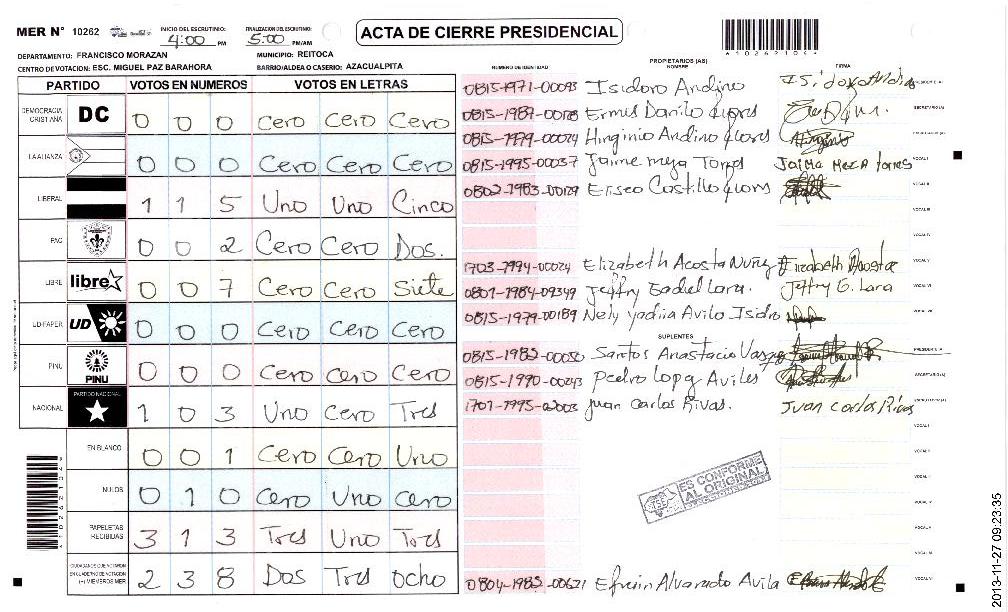 MER N° 10262 INICIO DEL ESCRUTINIO: 4:00 PM FINALIZACION DEL ESCRUTINIO: 5:00 PM/AM ACTA DE CIERRE PRESIDENCIAL
DEPARTAMENTO: FRANCISCO MORAZAN MUNICIPIO: REITOCA
CENTRO DE VOTACION: ESC. MIGUEL PAZ BARAHORA BARRIO/ALDEA O CASERIO: AZACUALPITA
PARTIDO VOTOS EN NUMEROS VOTOS EN LETRAS
DEMOCRACIA CRISTIANA DC 0 0 0 Cero Cero Cero
LA ALIANZA 0 0 0 Cero Cero Cero
LIBERAL 1 1 5 Uno Uno Cinco
PAC 0 0 2 Cero Cero Dos.
LIBRE libre 0 0 7 Cero Cero Siete
UD-FAPER UD 0 0 0 Cero Cero Cero
PINU PINU 0 0 0 Cero Cero Cero
NACIONAL PARTIDO NACIONAL 1 0 3 Uno Cero Tres
EN BLANCO 0 0 1 Cero Cero Uno
NULOS 0 1 0 Cero Uno Cero
PAPELETAS RECIBIDAS 3 1 3 Tres Uno Tres
CIUDADANOS QUE VOTARON EN CUADERNO DE VOTACION (+) MIEMBROS MER 2 3 8 Dos Tres ocho
NUMERO DE IDENTIDAD PROPIETARIOS (AS) NOMBRE FIRMA
0815-1971-00093 Isidoro Andino Isidoro Andino PRESIDENTE (A)
Ermis Danilo SECRETARIO (A)
0815-1979-00024 Hirginio Andino
0815-1995-00037 Jaime meza Torres Jaime Meza torres VOCAL I
0802-1983-00129 Eliseo Castillo VOCAL II
VOCAL III
VOCAL IV
1703-1994-00024 Elizabeth Acosta Nuñez Elizabeth Acosta VOCAL V
0801-1984-09349 Jeffry Gadel Lara. Jeffry G. Lara VOCAL VI
0815-1979-00189 Nely yadira Avila Isidro VOCAL VII
SUPLENTES
0815-1985-00050 Santos Anastacio Vasquez PRESIDENTE (A)
0815-1990-00243 Pedro Lopez Aviles SECRETARIO (A)
Juan Carlos Rivas. Juan Carlos Rivas
VOCAL I
VOCAL II
VOCAL III
VOCAL IV
VOCAL V
VOCAL VI
0804-1985-00621 Efrain Alvarado Avila VOCAL VII
ES CONFORME
AL ORIGINAL
2013-11-27 09:23:35